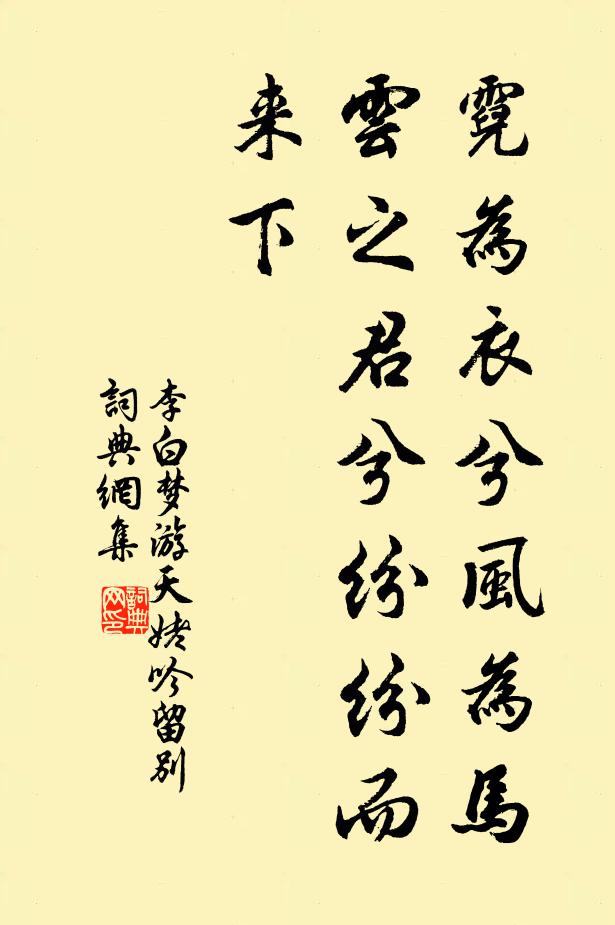 霓為衣兮風為馬
雲之君兮紛紛而
来下
李白梦游天姥吟留別
詞典網集
詞典网印